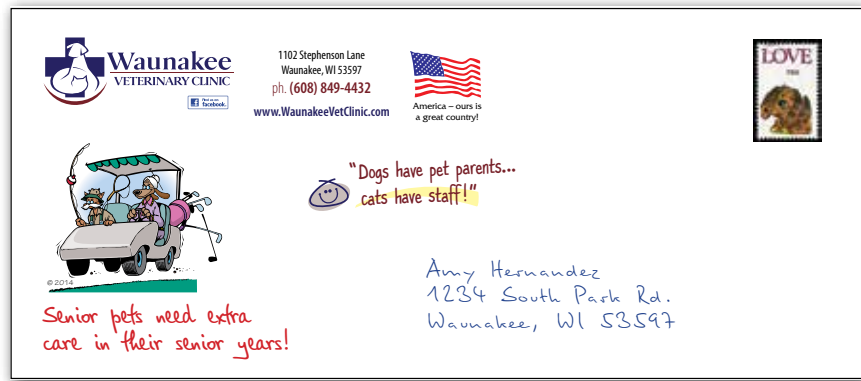 Waunakee
VETERINARY CLINIC
Find us on
facebook.
1102 Stephenson Lane
Waunakee, WI 53597
ph. (608) 849-4432
www.WaunakeeVetClinic.com
America – ours is
a great country!
LOVE
"Dogs have pet parents...
cats have staff!"
© 2014
Senior pets need extra
care in their senior years!
Amy Hernandez
1234 South Park Rd.
Waunakee, WI 53597